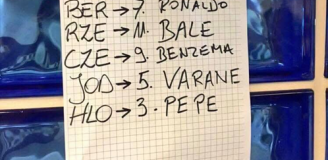 BER→7. RONALDO
RZE→11. BALE
CZE→9. BENZEMA
JOD→5. VARANE
HLO→3. PEPE